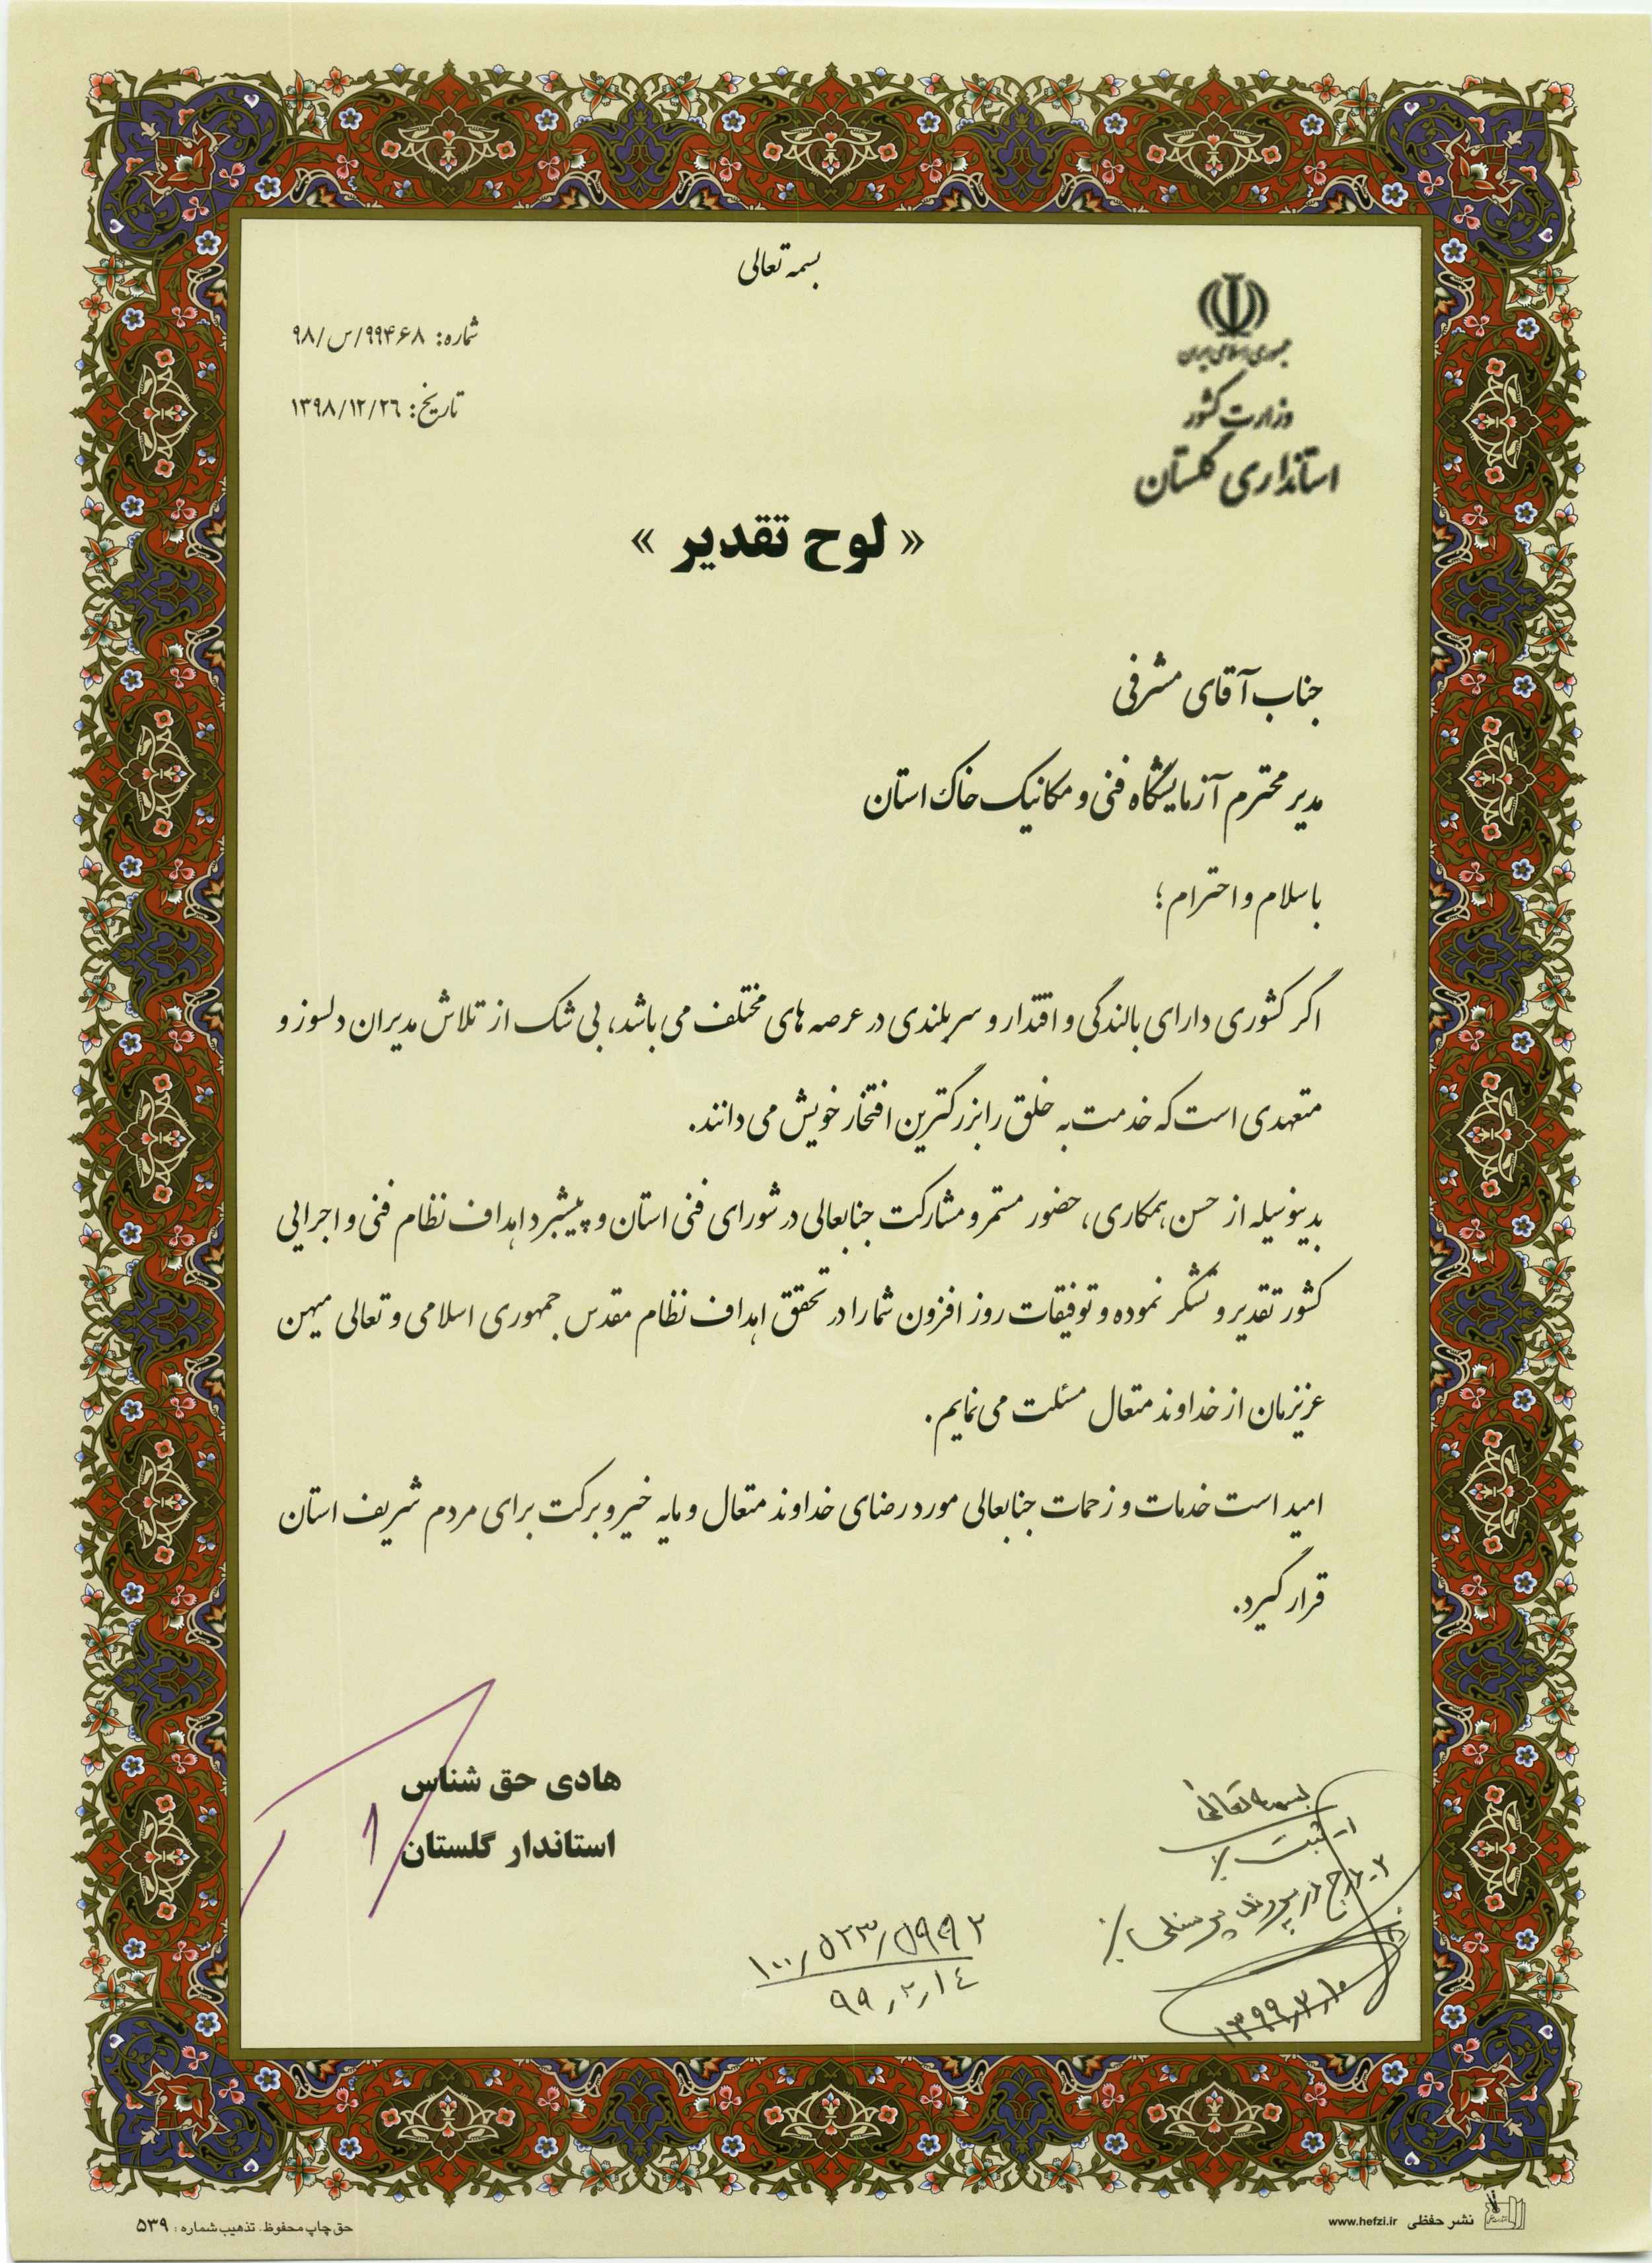 بسمه تعالی
جمهوری اسلامی ایران
وزارت کشور
استانداری گلستان
شماره: ۹۹۴۶۸/س/۹۸
تاریخ: ۱۳۹۸/۱۲/۲۶
« لوح تقدیر »
جناب آقای مشرفی
مدیر محترم آزمایشگاه فنی و مکانیک خاک استان
با سلام و احترام ؛
اگر کشوری دارای بالندگی و اقتدار و سربلندی در عرصه های مختلف می باشد، بی شک از تلاش مدیران دلسوز و
متعهدی است که خدمت به خلق را بزرگترین افتخار خویش می دانند.
بدینوسیله از حسن همکاری، حضور مستمر و مشارکت جنابعالی در شورای فنی استان و پیشبرد اهداف نظام فنی و اجرایی
کشور تقدیر و تشکر نموده و توفیقات روز افزون شما را در تحقق اهداف نظام مقدس جمهوری اسلامی و تعالی میهن
عزیزمان از خداوند متعال مسئلت می نمایم.
امید است خدمات و زحمات جنابعالی مورد رضای خداوند متعال و مایه خیر و برکت برای مردم شریف استان
قرار گیرد.
هادی حق شناس
استاندار گلستان
بسمه تعالی
۱- ثبت
۲- درج در پرونده پرسنلی
۱۳۹۹/۲/۱۰
۱۰۰/۵۲۳/۵۹۹۲
۹۹/۲/۱۴
نشر حفظی www.hefzi.ir
حق چاپ محفوظ. تذهیب شماره: ۵۳۹